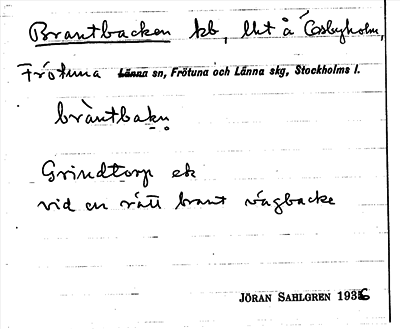 Brantbacken kb, lht å Osbyholm,
Frötuna Länna sn, Frötuna och Länna skg, Stockholms l.
bràntbakn
Grindtorp ek
vid en rätt brant vägbacke
JÖRAN SAHLGREN 1936